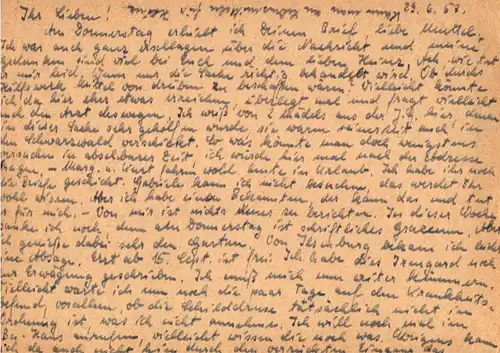 Ihr Lieben! 23.6.53.
Am Donnerstag erhielt ich Deinen Brief, liebe Muttel.
Ich war auch ganz zerschlagen über die Nachricht und meine
Gedanken sind viel bei Euch und dem lieben Heinz. Ach, wie tut
er mir leid. Wenn nur die Sache richtig behandelt wird. Ob durchs
Hilfswerk Mittel von drüben zu beschaffen wären? Vielleicht könnte
ich da hier eher etwas erreichen, überlegt mal und fragt vielleicht
auch den Arzt deswegen. Ich weiß von 2 Mädels aus der J.G. hier, denen
in dieser Sache sehr geholfen wurde, sie waren seinerzeit auch in
den Schwarzwald verschickt. So was könnte man doch wenigstens
versuchen in absehbarer Zeit. Ich würde hier mal nach der Adresse
fragen. – Marg. u. Kurt fahren wohl heute in Urlaub. Ich habe ihr noch
die Briefe geschickt. Gabriele kann ich nicht besuchen, das werdet Ihr
wohl wissen. Aber ich habe einen Bekannten, der kann das und tut
es für mich. – Von mir ist nichts Neues zu berichten. In dieser Woche
noch, dem am Donnerstag ist schriftliches Examen. Aber
ich genieße dabei sehr den Garten. Von Ilsenburg bekam ich leider
eine Absage. Erst ab 15. Sept. ist frei. Ich habe dies Irmgard noch
zur Erwägung geschrieben. Ich muß mich nun weiter kümmern.
Vielleicht warte ich nun noch die paar Tage auf den Krankheits-
befund, vor allem, ob die Schilddrüse tatsächlich nicht in
Ordnung ist, was ich nicht annehme. Ich will noch mal in
anrufen, vielleicht wissen die noch was. Übrigens kann
ich da auch nicht hin durch den verrückten